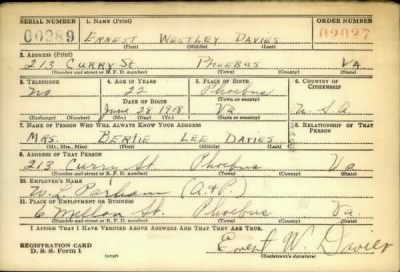 SERIAL NUMBER 1. NAME (Print) ORDER NUMBER
00289 ERNEST WESTLEY DAVIES 02027
(First) (Middle) (Last)
2. ADDRESS (Print)
213 CURRY St. PHOEBUS VA.
(Number and street or R. F. D. number) (Town) (County) (State)
3. TELEPHONE 4. AGE IN YEARS 5. PLACE OF BIRTH 6. COUNTRY OF CITIZENSHIP
No 22 Phoebus
DATE OF BIRTH (Town or county)
28 1918 Va. U. S. A.
(Exchange) (Number) (Mo.) (Day) (Yr.) (State or country)
7. NAME OF PERSON WHO WILL ALWAYS KNOW YOUR ADDRESS 8. RELATIONSHIP OF THAT PERSON
MRS. BERTIE LEE DAVIES
(Mr., Mrs., Miss) (First) (Middle) (Last)
9. ADDRESS OF THAT PERSON
213 Curry St. Phoebus Va.
(Number and street or R. F. D. number) (Town) (County) (State)
10. EMPLOYER'S NAME
W. L. Parham (A.&P.)
11. PLACE OF EMPLOYMENT OR BUSINESS
St. Phoebus Va.
(Number and street or R. F. D. number) (Town) (County) (State)
I AFFIRM THAT I HAVE VERIFIED ABOVE ANSWERS AND THAT THEY ARE TRUE.
REGISTRATION CARD
D. S. S. Form 1
(over)
Ernest W. Davies
(Registrant's signature)